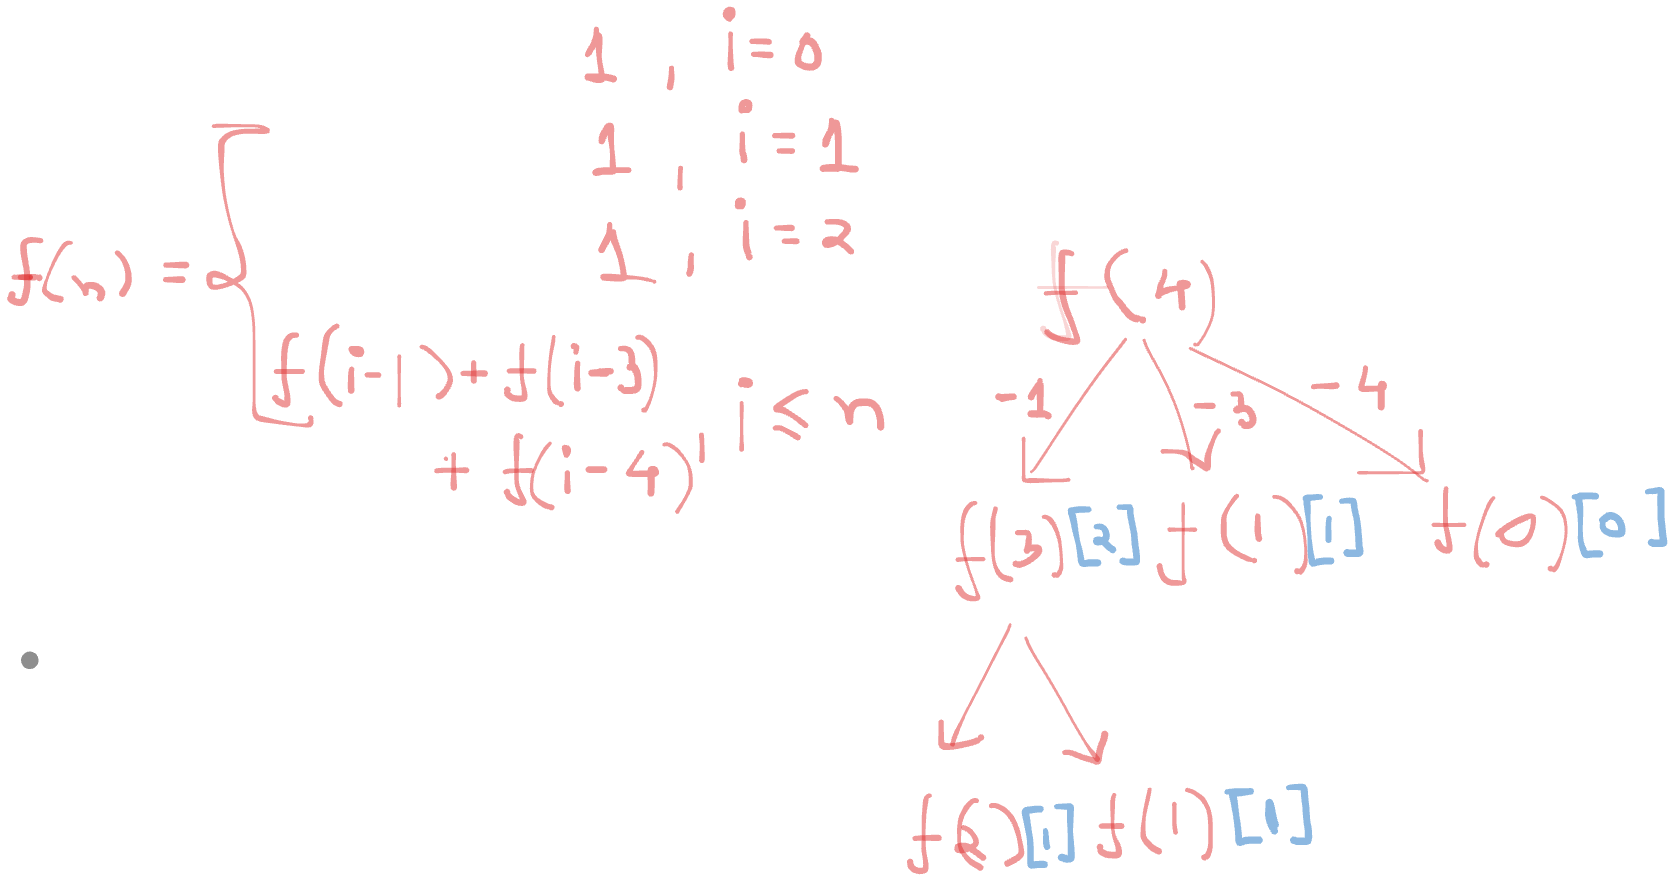 1 , i = 0
1 , i = 1
1 , i = 2
f(n) =
f(i-1) + f(i-3)
+ f(i-4) , i ≤ n
f(4)
-1 -3 -4
f(3)[2] f(1)[1] f(0)[0]
f(2)[1] f(1)[1]